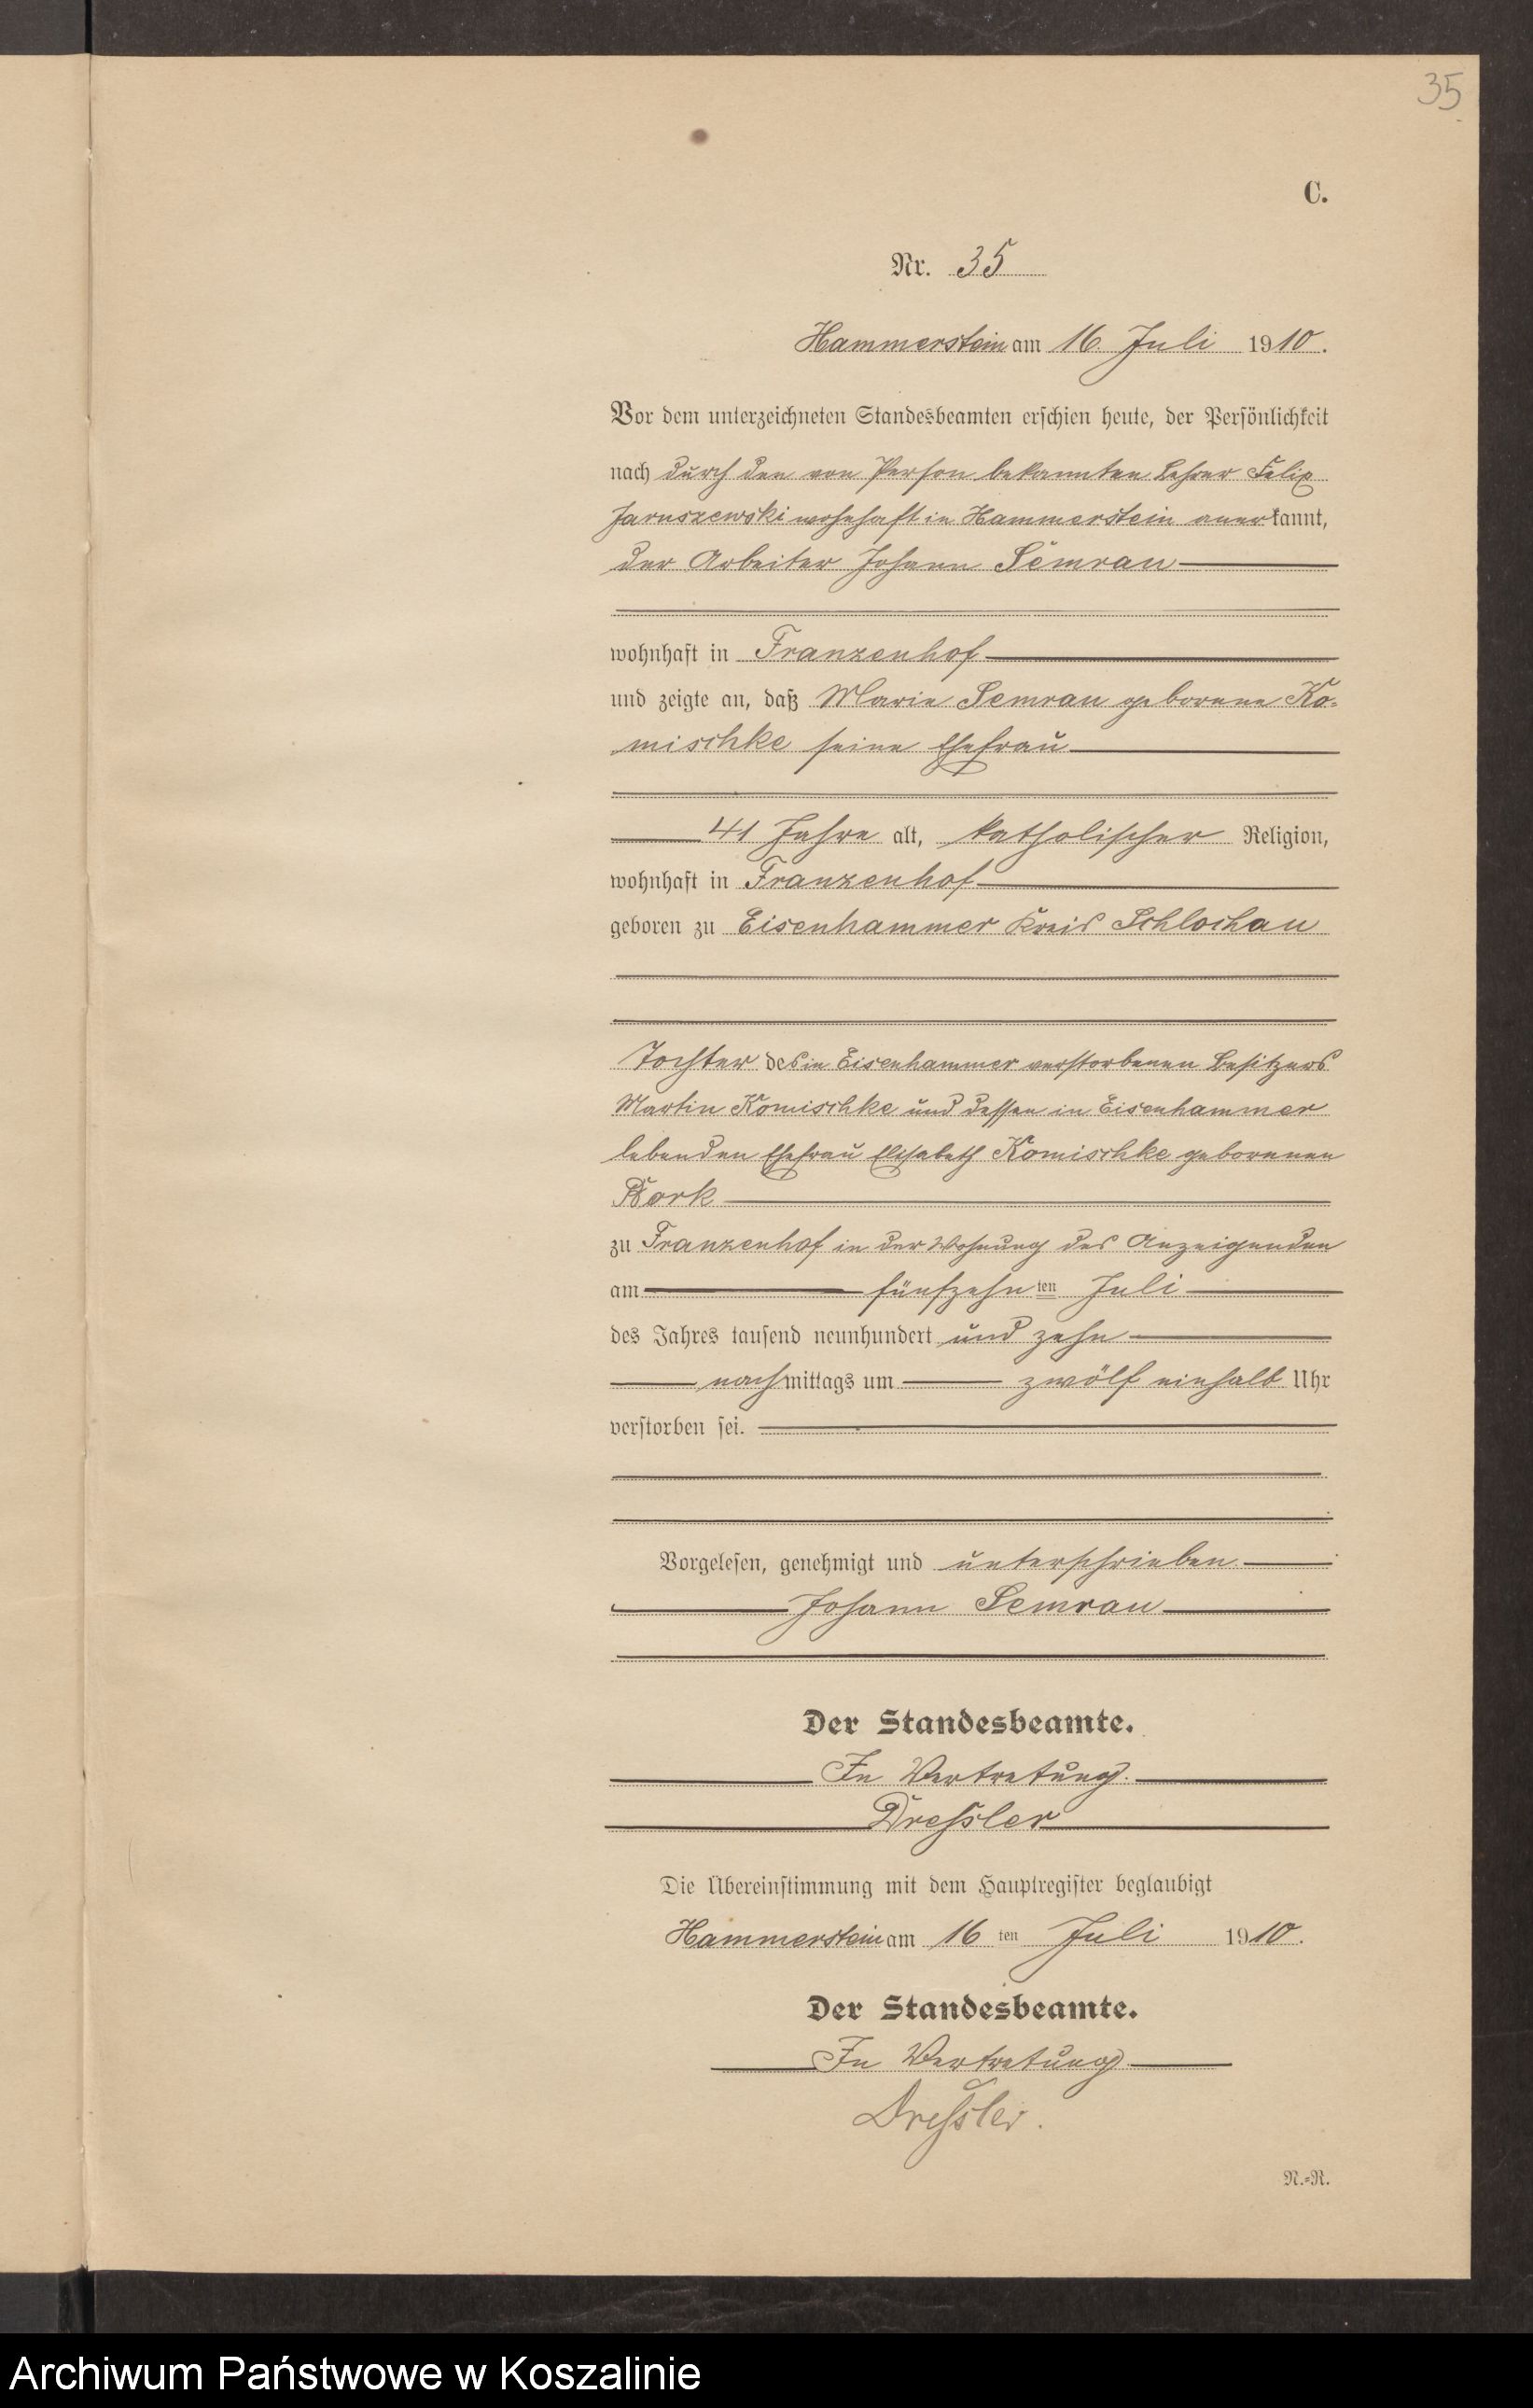 35
C.
Nr. 35
Hammerstein am 16. Juli 1910.
Vor dem unterzeichneten Standesbeamten erschien heute, der Persönlichkeit
nach durch den von Person bekannten Lehrer Felix
Jaruszewski wohnhaft in Hammerstein anerkannt,
der Arbeiter Johann Semrau
wohnhaft in Franzenhof
und zeigte an, daß Marie Semrau geborene Ko-
mischke seine Ehefrau
41 Jahre alt, katholischer Religion,
wohnhaft in Franzenhof
geboren zu Eisenhammer Kreis Schlochau
Tochter des in Eisenhammer verstorbenen Besitzers
Martin Komischke und dessen in Eisenhammer
lebenden Ehefrau Elisabeth Komischke geborenen
zu Franzenhof in der Wohnung des Anzeigenden
am fünfzehnten Juli
des Jahres tausend neunhundert und zehn
nachmittags um zwölf einhalb Uhr
verstorben sei.
Vorgelesen, genehmigt und unterschrieben
Johann Semrau
Der Standesbeamte.
In Vertretung.
Dreßler
Die Übereinstimmung mit dem Hauptregister beglaubigt
Hammerstein am 16 ten Juli 1910.
Der Standesbeamte.
In Vertretung
Dreßler.
N.=R.
Archiwum Państwowe w Koszalinie